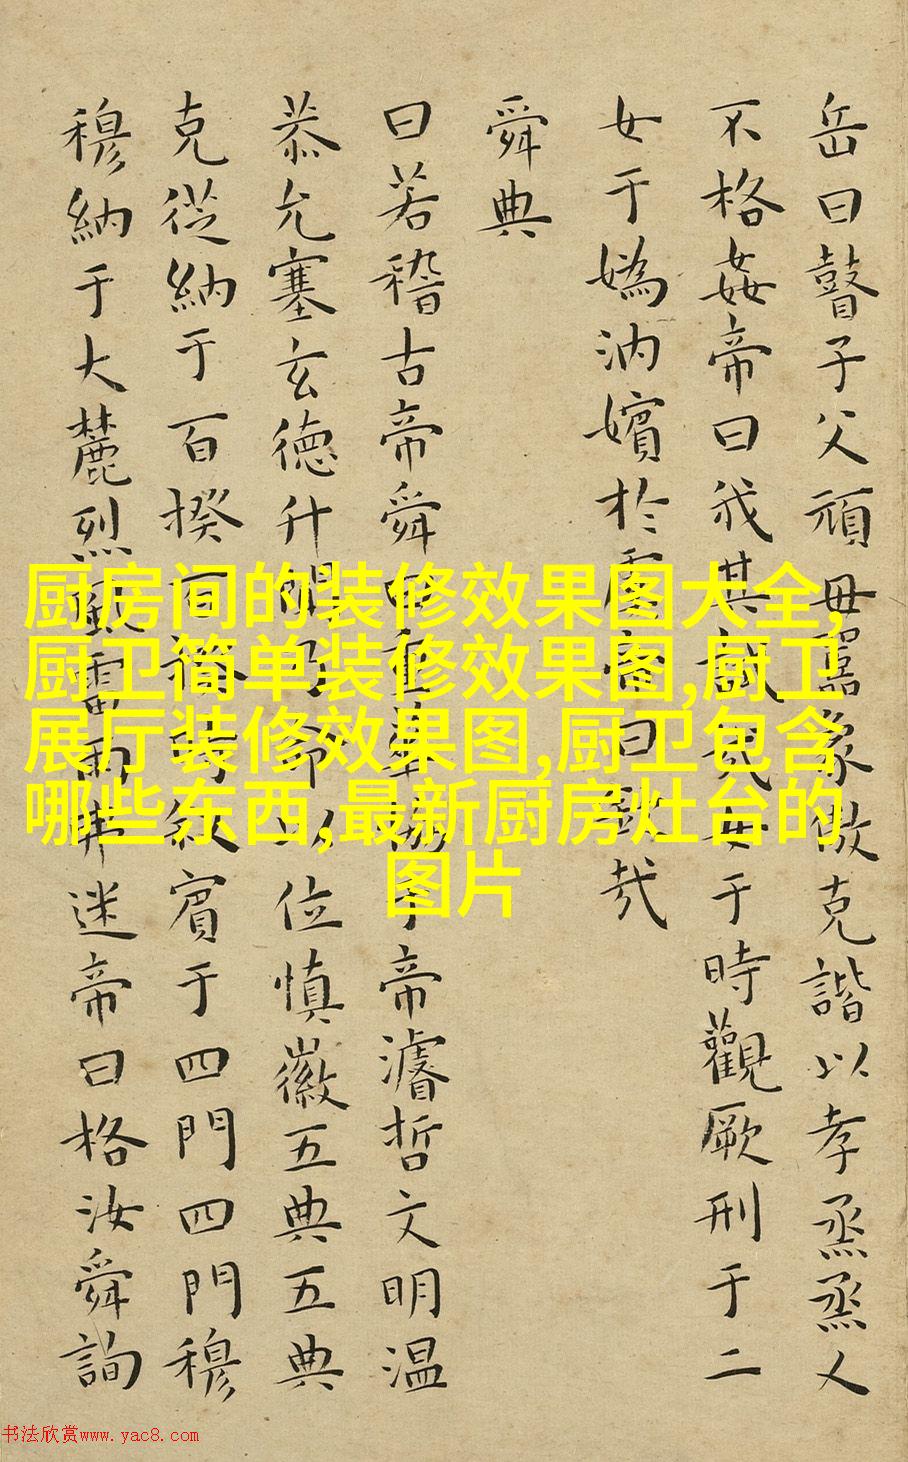 岳曰瞽子父頑毋嚚象傲克諧以孝烝烝乂
不格姦帝曰我其試哉女于時觀厥刑于二
女于媯汭嬪於虞帝曰欽哉
舜典
曰若稽古帝舜曰重華協于帝濬哲文明温
恭允塞玄德升聞乃命以位慎徽五典五典
克從納于百揆百揆時敘賓于四門四門穆
穆納于大麓烈風雷雨弗迷帝曰格汝舜詢
厨房间的装修效果图大全,
厨卫简单装修效果图,厨卫
展厅装修效果图,厨卫包含
哪些东西,最新厨房灶台的
图片
书法欣赏www.yac8.com